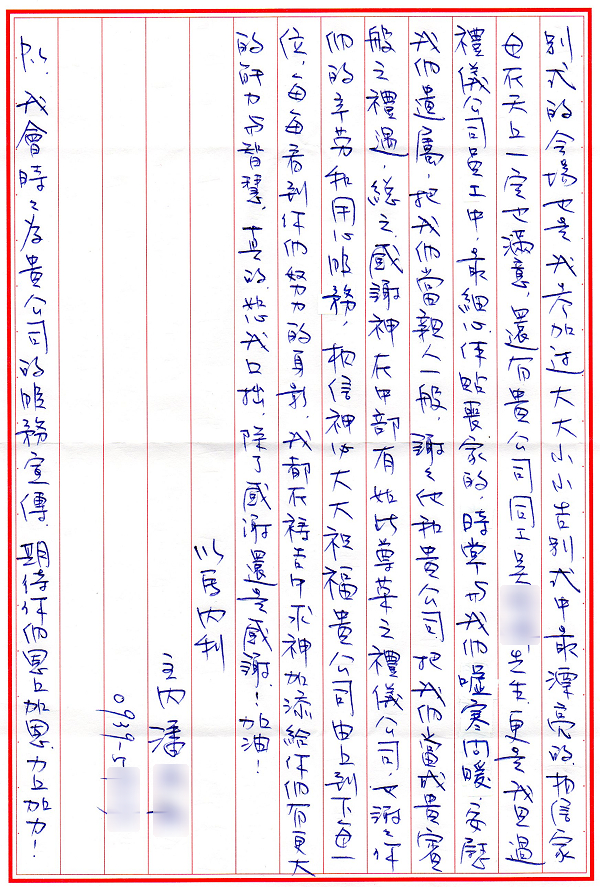 別式的會場也是我參加過大大小小告別式中最漂亮的,相信家
母在天上一定也滿意,還有貴公司同工吳 先生,更是我見過
禮儀公司員工中,最細心体貼喪家的,時常与我們噓寒問暖,安慰
我們遺屬,把我們當親人一般,謝謝他和貴公司把我們當成貴賓
般之禮遇,總之感謝神在中部有如此尊榮之禮儀公司,也謝謝你
們的辛勞和用心服務,相信神必大大祝福貴公司由上到下每一
位,每每看到你們努力的身影,我都在禱告中求神加添給你們有更大
的能力与智慧,真的,恕我口拙,除了感謝還是感謝!加油!
以馬內利
主內潘
0939-5
P.S. 我會時時為貴公司的服務宣傳,期待你們恩上加恩力上加力!